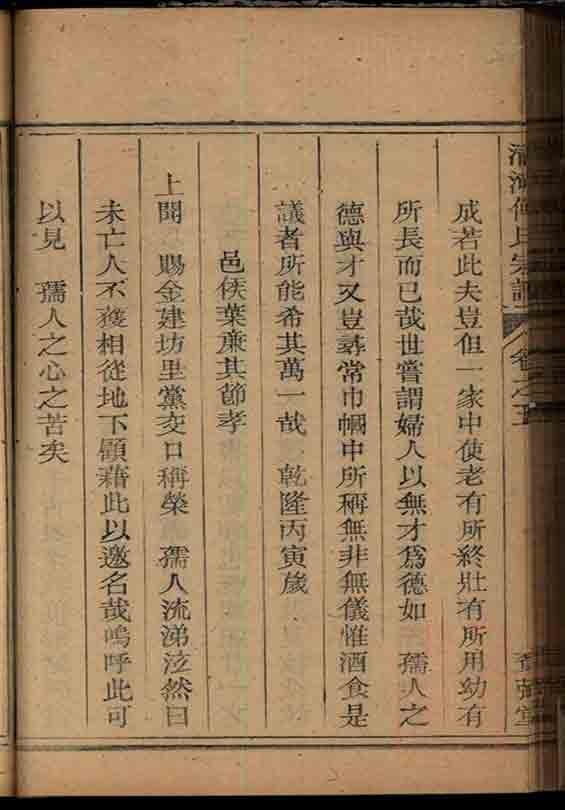 何氏宗譜 卷之五
成若此夫豈但一家中使老有所終壯有所用幼有
所長而已哉世嘗謂婦人以無才為德如 孺人之
德與才又豈尋常巾幗中所稱無非無儀惟酒食是
議者所能希其萬一哉 乾隆丙寅歲
邑侯葉亷其節孝
上聞 賜金建坊里黨交口稱榮 孺人流涕泣然曰
未亡人不獲相從地下顧藉此以邀名哉嗚呼此可
以見 孺人之心之苦矣